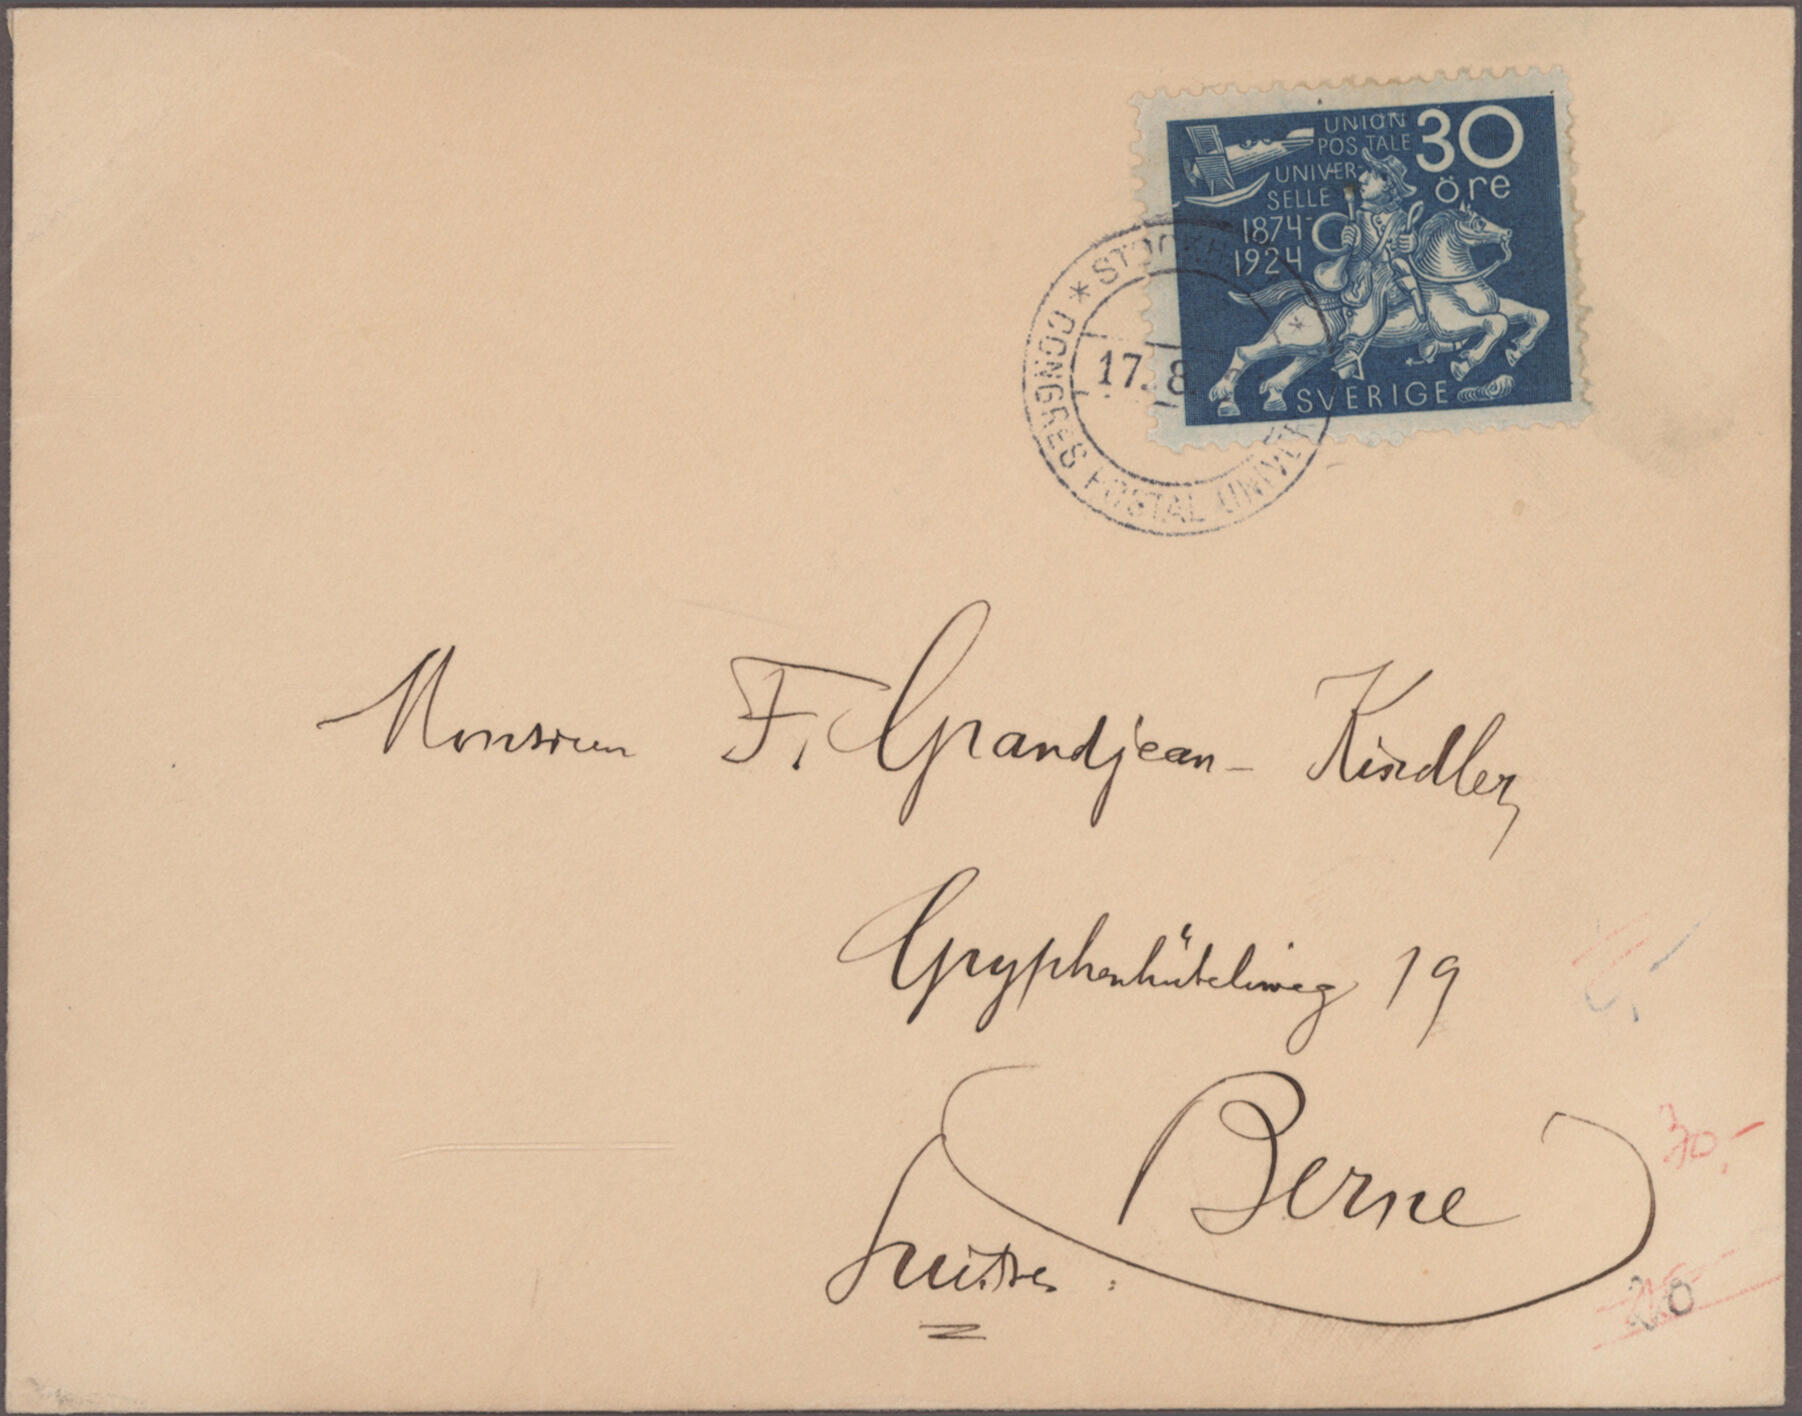 UNION
POSTALE
UNIVER-
SELLE
1874-
1924
30
öre
SVERIGE
* STOCKH
CONGRES POSTAL UNIVE
17. 8
Monsieur F. Grandjean-Kindler,
Gryphenhübeliweg 19
Berne
Suisse.
30,-